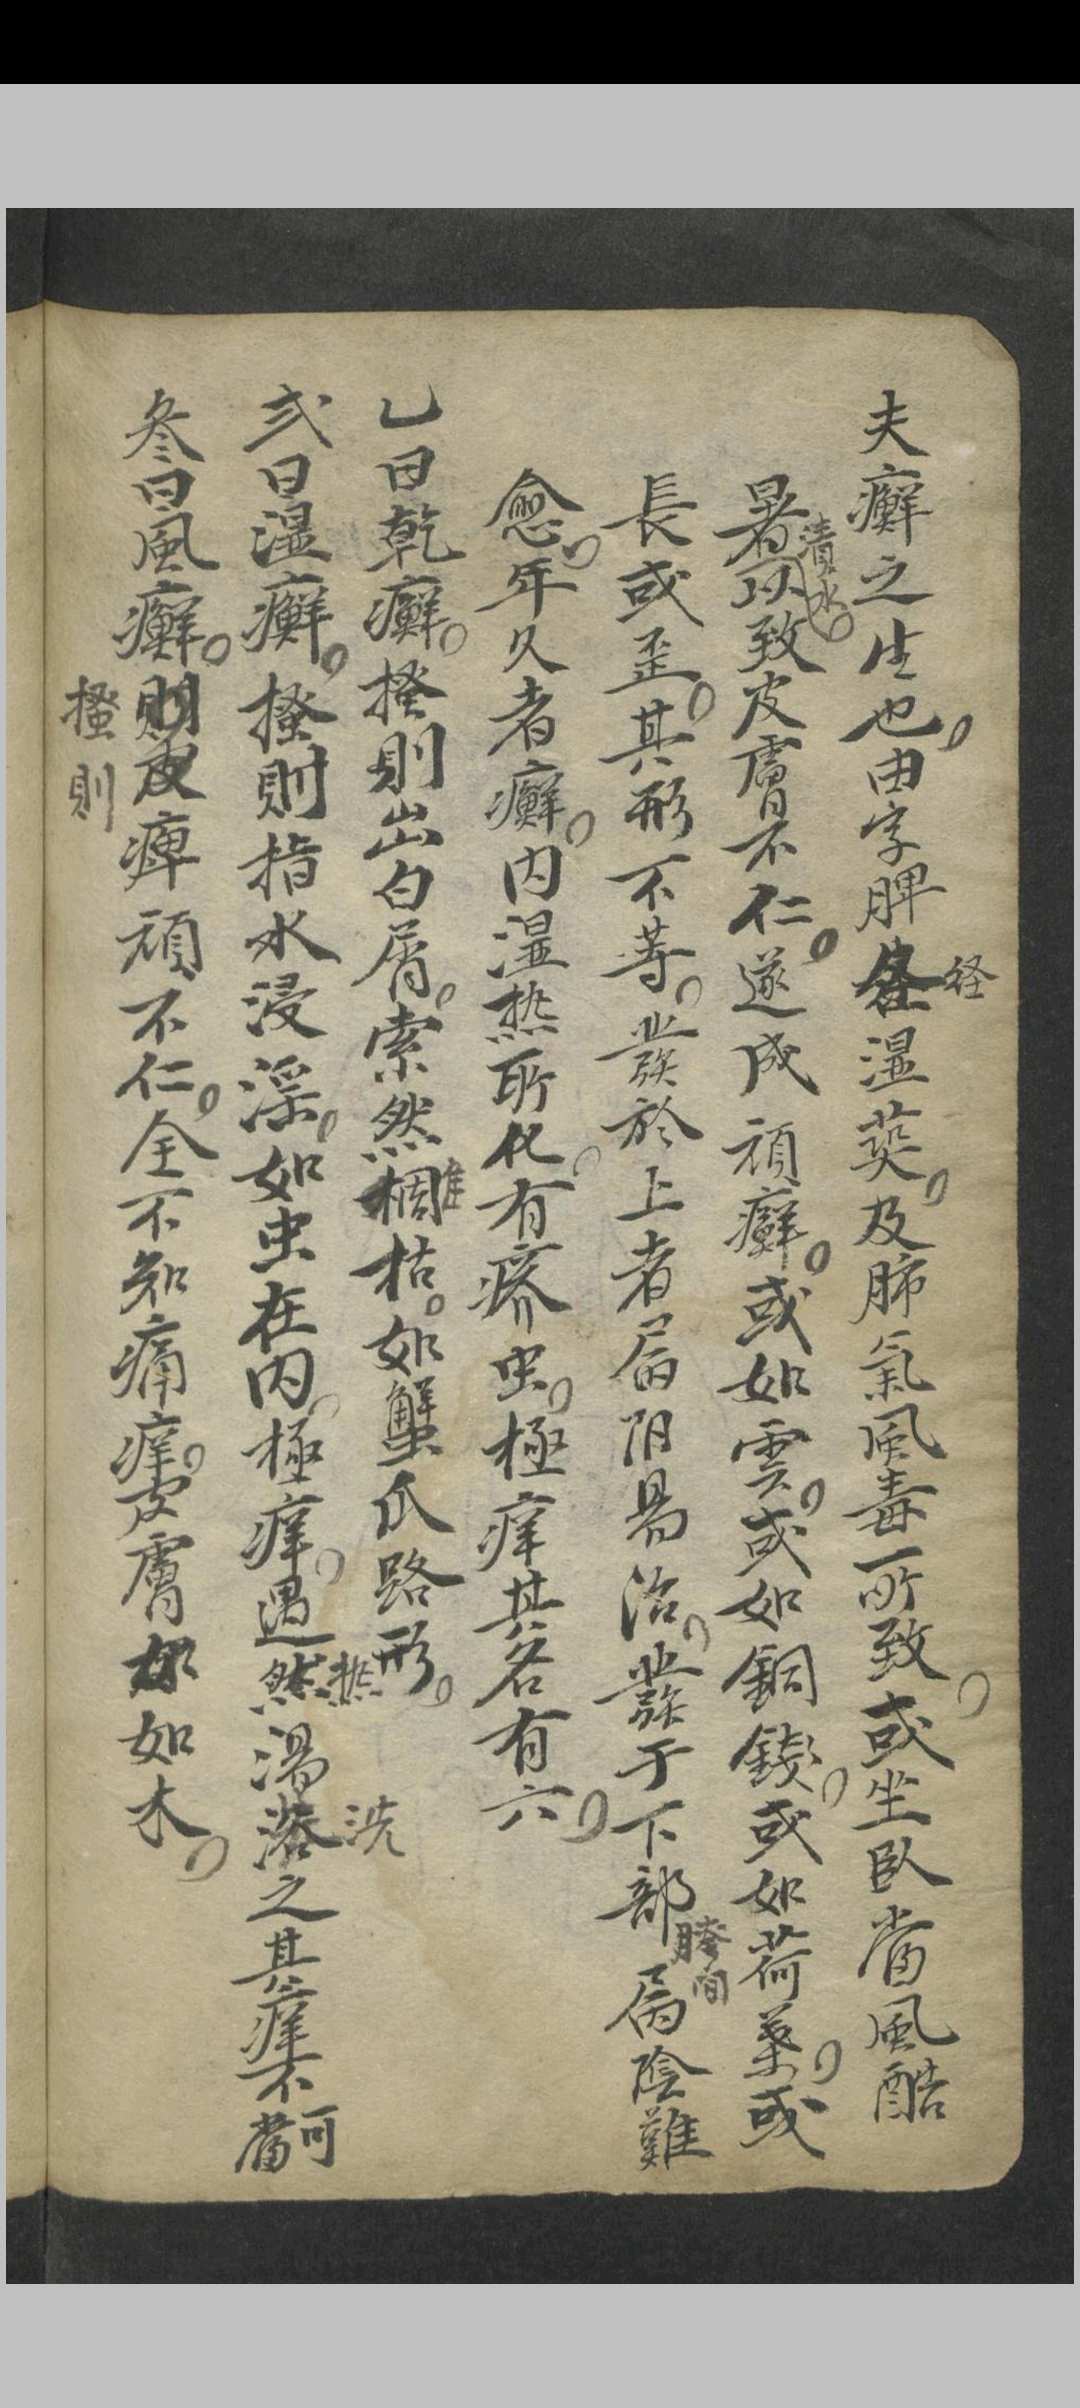 夫癬之生也由字脾经湿葵及肺氣風毒所致或坐臥當風酷
暑清水以致皮膚不仁遂成頑癬或如雲或如銅錢或如荷葉或
長或歪其形不等發於上者屬阳易治發于下部胯间屬陰難
愈年久者癬内湿热所化有疥虫極痒其名有六
乙曰乾癬搔則出白屑索然 枯如蟹爪路形
弍曰湿癬搔則指水浸淫如虫在内極痒遇热湯洗之其痒不可當
叁曰風癬搔則皮痺頑不仁全不知痛痒皮膚如木